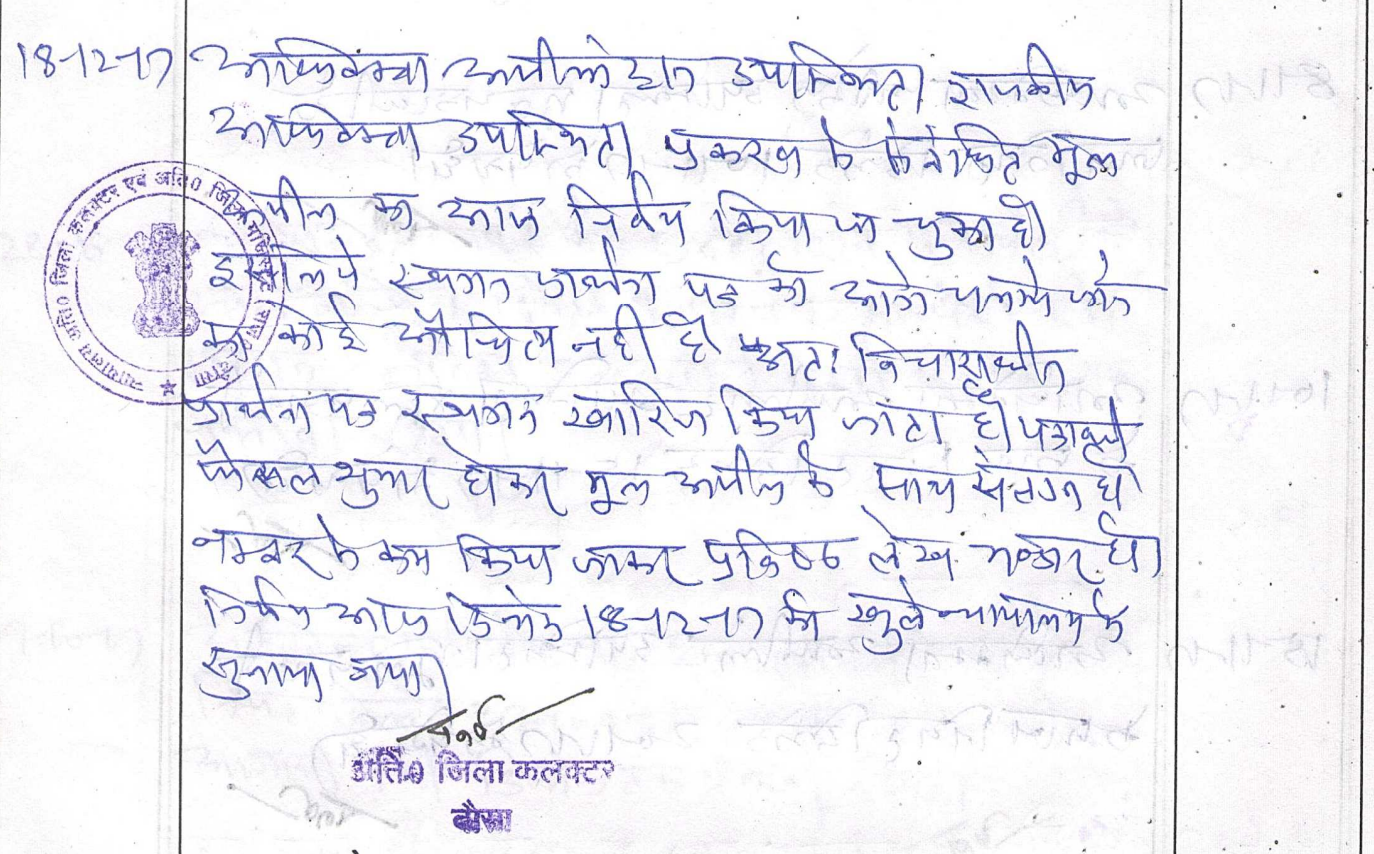 18-12-17 अभिभाषक अपीलांट उपस्थित। राजकीय
अभिभाषक उपस्थित। प्रकरण के मूल
अपील का आज निर्णय किया जा चुका है।
इसलिये स्थगन प्रार्थना पत्र को आगे चलाये जाने
का कोई औचित्य नहीं है। अतः विचाराधीन
प्रार्थना पत्र स्थगन खारिज किया जाता है। पत्रावली
फैसल शुमार होकर मूल अपील के साथ संलग्न हो
नम्बर से कम किया जाकर प्रविष्ठ लेख भण्डार हो।
निर्णय आज दिनांक 18-12-17 को खुले न्यायालय में
सुनाया गया।
अति० जिला कलक्टर
दौसा
न्यायालय अति० जिला कलक्टर एवं अति० जिला